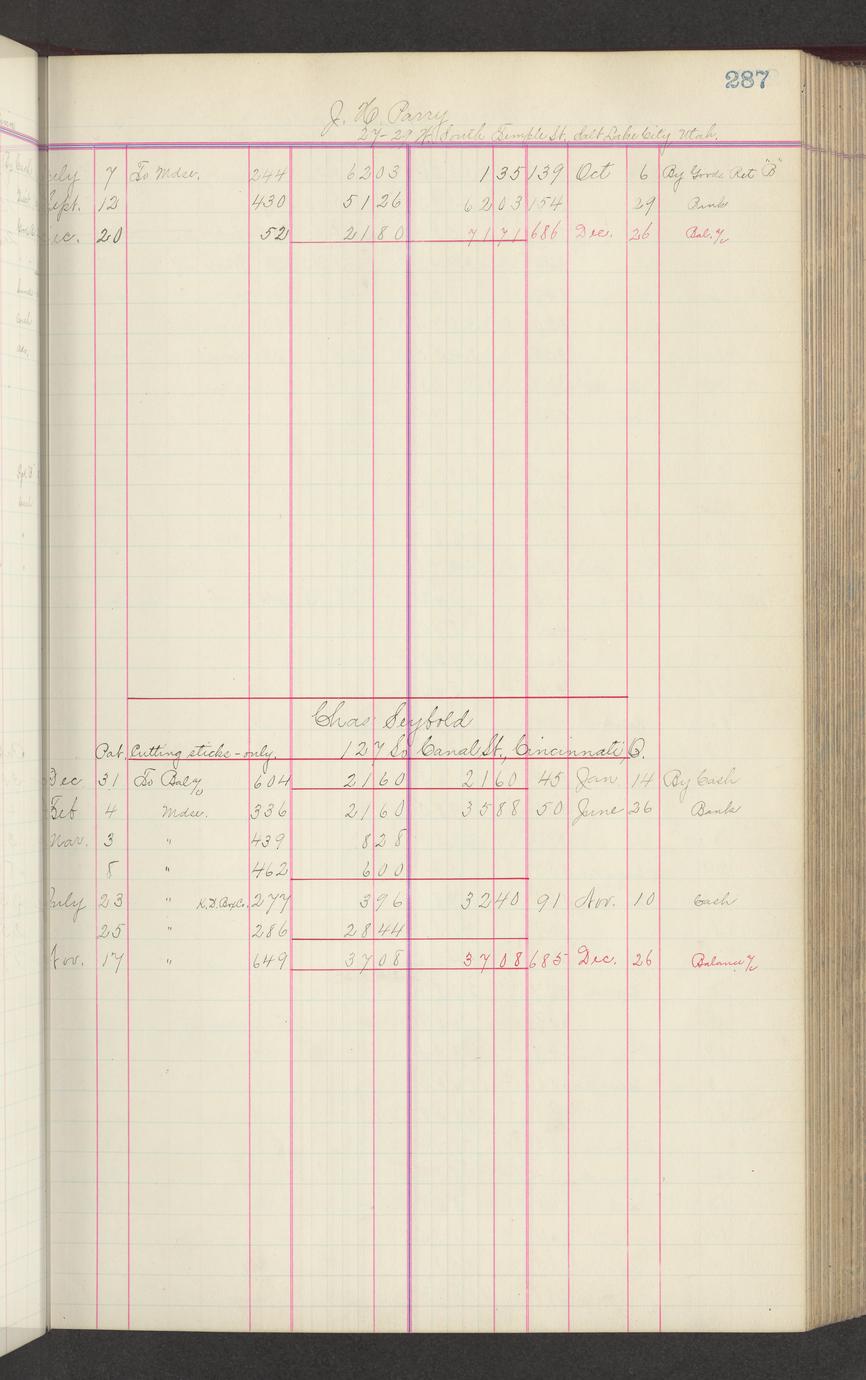 287
J. H. Parry
27-29 W. South Temple St. Salt Lake City Utah.
July 7 To Mdse. 244 62 03 1 35 139 Oct 6 By Goods Ret "B"
Sept. 12 430 51 26 62 03 154 29 Bank
Dec. 20 52 21 80 71 71 686 Dec. 26 Bal. %
Chas Seybold
Pat. Cutting sticks - only. 127 So Canal St., Cincinnati, O.
Dec 31 To Bal % 604 21 60 21 60 45 Jan 14 By Cash
Feb 4 Mdse. 336 21 60 35 88 50 June 26 Bank
Mar. 3 " 439 8 28
8 " 462 6 00
July 23 " K.D. Box Co. 277 3 96 32 40 91 Nov. 10 Cash
25 " 286 28 44
Nov. 17 " 649 37 08 37 08 685 Dec. 26 Balance %